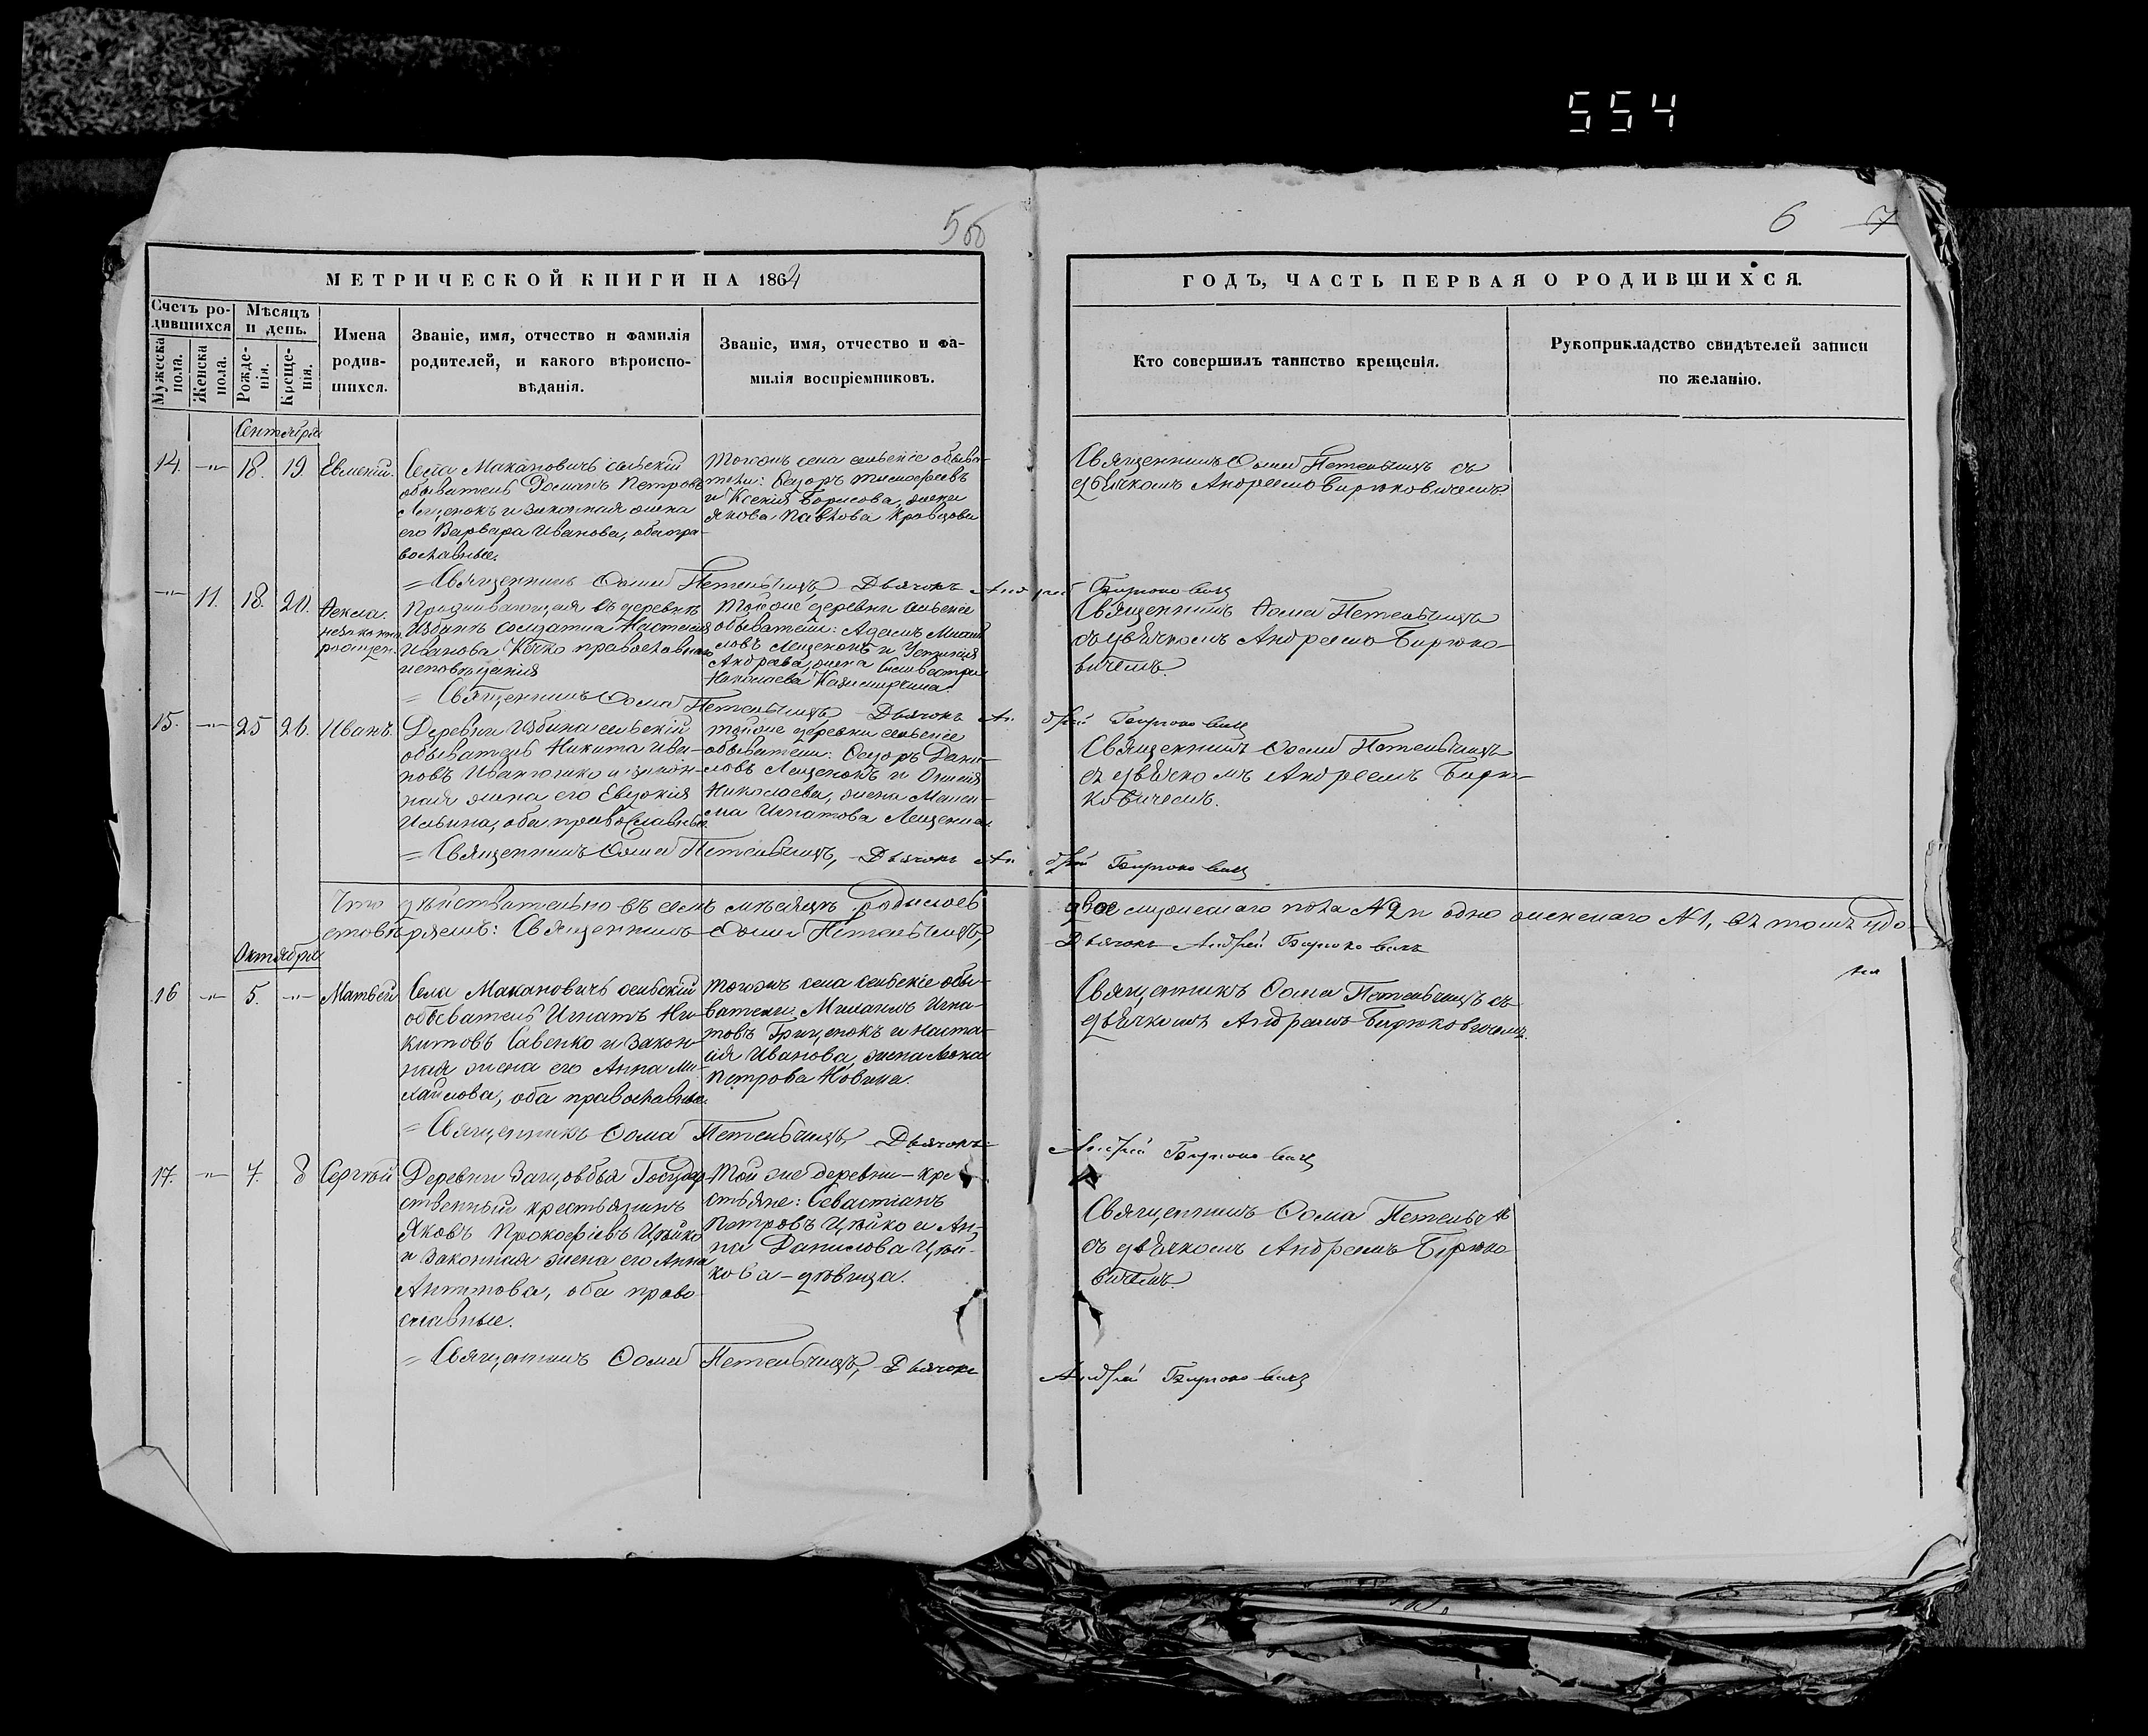 554
6 7
МЕТРИЧЕСКОЙ КНИГИ НА 1864
ГОДЪ, ЧАСТЬ ПЕРВАЯ О РОДИВШИХСЯ.
Счетъ ро-
дившихся
Мужеска пола.
Женска пола.
Мѣсяцъ
и день.
Рожде-
нія.
Креще-
нія.
Имена
родив-
шихся.
Званіе, имя, отчество и фамилія
родителей, и какого вѣроиспо-
вѣданія.
Званіе, имя, отчество и фа-
милія воспріемниковъ.
Кто совершилъ таинство крещенія.
Рукоприкладство свидѣтелей записи
по желанію.
Сентября
14. -"- 18. 19.
Села Макановичъ сельскій
обыватель Романъ Петровъ
Лещенокъ и законная жена
его Варвара Иванова, оба пра-
вославные.
Тогожъ села сельскіе обыва-
тели: Ѳедоръ Тимоѳеевъ
и Ксенія Борисова, жена
Якова Павлова Кравцова
Священникъ Ѳома Петельчицъ съ
дьячкомъ Андреемъ Бирюковичемъ.
= Священникъ Ѳома Петельчицъ Дьячокъ Андрей Бирюковичъ
-"- 11. 18. 20. Ѳекла.
незаконно
рожден.
Проживающая въ деревнѣ
Избинѣ солдатка Настасія
Иванова православнаго
исповѣданія
Той же деревни сельскіе
обыватели: Адамъ Михай-
ловъ Лещенокъ и Устинія
Андреева, жена Сильвестра
Николаева
Священникъ Ѳома Петельчицъ
съ дьячкомъ Андреемъ Бирюко-
вичемъ.
= Священникъ Ѳома Петельчицъ Дьячокъ Андрей Бирюковичъ
15. -"- 25 26. Иванъ.
Деревни Избина сельскій
обыватель Никита Ива-
новъ Иванюшко и закон-
ная жена его Евдокія
Ильина, оба православные.
Тойже деревни сельскіе
обыватели: Ѳедоръ Дани-
ловъ Лещенокъ и
Николаева, жена
Игнатова
Священникъ Ѳома Петельчицъ
съ дьячкомъ Андреемъ Бирю-
ковичемъ.
= Священникъ Ѳома Петельчицъ, Дьячокъ Андрей Бирюковичъ
Что дѣйствительно въ семъ мѣсяцѣ родилось двое мужескаго пола №2 и одно женскаго №1, въ томъ удо-
стовѣряемъ: Священникъ Ѳома Петельчицъ, Дьячокъ Андрей Бирюковичъ
Октября
16 -"- 5. -"- Матѳей
Села Макановичъ сельскій
обыватель Игнатъ Ни-
китовъ Савенко и закон-
ная жена его Анна Ми-
хайлова, оба православные.
Тогожъ села сельскіе обы-
ватели: Михаилъ Игна-
товъ Гриценокъ и Наста-
сія Иванова, жена
Петрова Новика.
Священникъ Ѳома Петельчицъ съ
дьячкомъ Андреемъ Бирюковичемъ.
= Священникъ Ѳома Петельчицъ, Дьячокъ Андрей Бирюковичъ
17. -"- 7. 8 Сергѣй
Деревни Государ-
ственный крестьянинъ
Яковъ Прокофіевъ Цѣйко
и законная жена его Анна
Антонова, оба право-
славные.
Той же деревни – кре
стьяне: Севастіанъ
Петровъ Цѣйко и Ан-
на Данилова Цѣй-
кова – дѣвица.
Священникъ Ѳома Петельч
съ дьячкомъ Андреемъ Бирюко
вичемъ.
= Священникъ Ѳома Петельчицъ, Дьячокъ Андрей Бирюковичъ